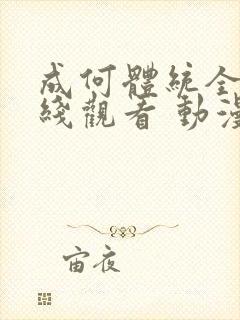 成何體統全
綫觀看 動漫
宙夜